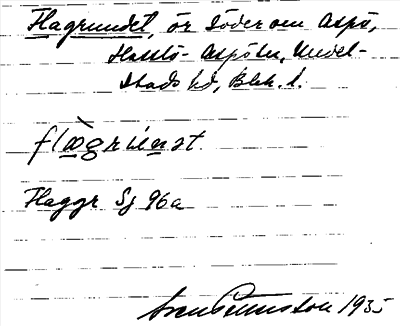 Flagrundet, ör söder om Aspö,
Hasslö-Aspö sn, Medel-
stads hd, Blek. l.
flàgriɛnət.
Flaggr Sj 96a
Sven Benson 1935